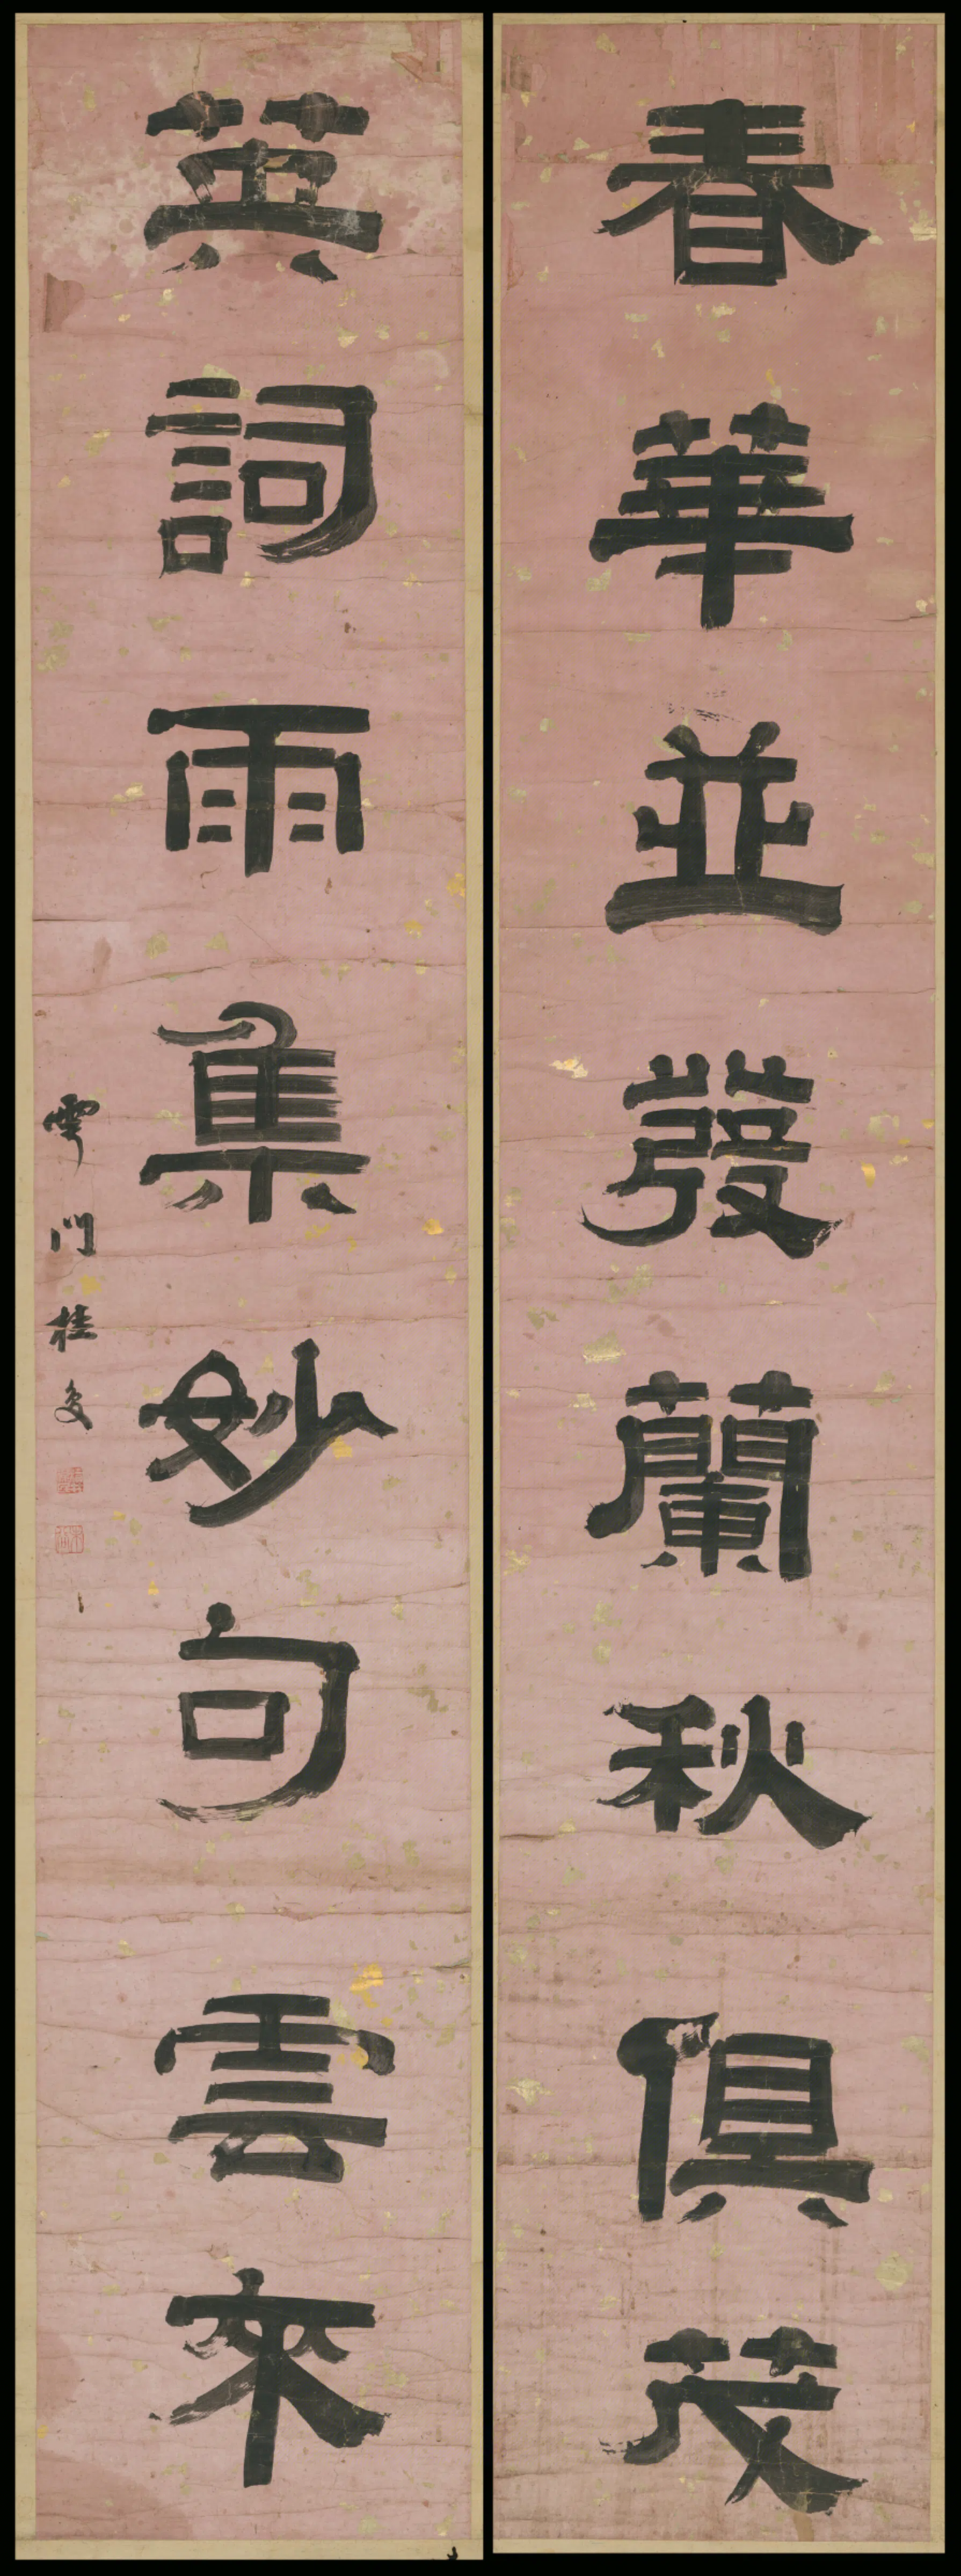 春華並發蘭秋俱茂
英詞雨集妙句雲來
雩門桂馥